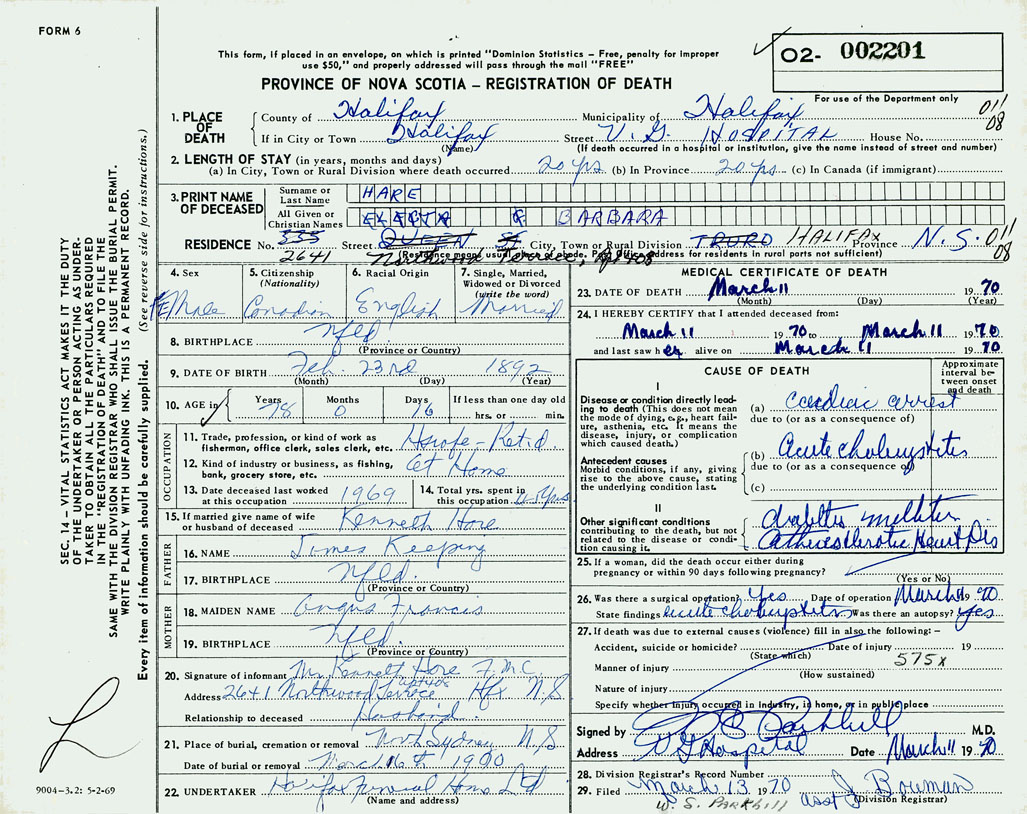 FORM 6
This form, if placed in an envelope, on which is printed "Dominion Statistics – Free, penalty for improper
use $50," and properly addressed will pass through the mail "FREE"
PROVINCE OF NOVA SCOTIA – REGISTRATION OF DEATH
02- 002201
For use of the Department only
011
08
1. PLACE OF DEATH
County of Halifax Municipality of Halifax
If in City or Town Halifax Street V.G. HOSPITAL House No.
(Name) (If death occurred in a hospital or institution, give the name instead of street and number)
2. LENGTH OF STAY (in years, months and days)
(a) In City, Town or Rural Division where death occurred 20 yrs (b) In Province 20 yrs (c) In Canada (if immigrant)
3. PRINT NAME OF DECEASED
Surname or Last Name HARE
All Given or Christian Names & BARBARA
RESIDENCE No. 335 Street QUEEN St City, Town or Rural Division TRURO HALIFAX Province N.S. 011
08
2641
(Residence means usual place of abode. Post Office Address for residents in rural parts not sufficient)
4. Sex FEMale
5. Citizenship (Nationality) Canadian
6. Racial Origin English
7. Single, Married, Widowed or Divorced (write the word) Married
8. BIRTHPLACE Nfld
(Province or Country)
9. DATE OF BIRTH Feb. 23rd 1892
(Month) (Day) (Year)
10. AGE in Years 78 Months 0 Days 16 If less than one day old
hrs. or min.
OCCUPATION
11. Trade, profession, or kind of work as
fisherman, office clerk, sales clerk, etc. Hswfe-Ret'd
12. Kind of industry or business, as fishing,
bank, grocery store, etc. At Home
13. Date deceased last worked
at this occupation 1969
14. Total yrs. spent in
this occupation
15. If married give name of wife
or husband of deceased Kenneth Hare
FATHER
16. NAME James Keeping
17. BIRTHPLACE Nfld.
(Province or Country)
MOTHER
18. MAIDEN NAME Francis
19. BIRTHPLACE Nfld.
(Province or Country)
20. Signature of informant Mr Kenneth Hare
Address 2641 Northwood Terrace Hfx N.S
Relationship to deceased Husband.
21. Place of burial, cremation or removal North Sydney N.S
Date of burial or removal March 16th 1970
22. UNDERTAKER Halifax Funeral Home Ltd
(Name and address)
MEDICAL CERTIFICATE OF DEATH
23. DATE OF DEATH March 11 1970
(Month) (Day) (Year)
24. I HEREBY CERTIFY that I attended deceased from:
March 11 1970 to March 11 1970
and last saw her alive on March 11 1970
CAUSE OF DEATH
Approximate interval between onset and death
I
Disease or condition directly leading
to death (This does not mean
the mode of dying, e.g., heart failure,
asthenia, etc. It means the
disease, injury, or complication
which caused death.)
(a) Cardiac arrest
due to (or as a consequence of)
Antecedent causes
Morbid conditions, if any, giving
rise to the above cause, stating
the underlying condition last.
(b) Acute cholecystitis
due to (or as a consequence of)
(c)
II
Other significant conditions
contributing to the death, but not
related to the disease or condition
causing it.
diabetes mellitus
Atherosclerotic Heart Dis
25. If a woman, did the death occur either during
pregnancy or within 90 days following pregnancy?
(Yes or No)
26. Was there a surgical operation? Yes Date of operation March 11 1970
State findings acute cholecystitis Was there an autopsy? Yes
27. If death was due to external causes (violence) fill in also the following: –
Accident, suicide or homicide? Date of injury 19
(State which) 575X
Manner of injury
(How sustained)
Nature of injury
Specify whether injury occurred in industry, in home, or in public place
Signed by W S Parkhill M.D.
Address V G Hospital Date March 11 1970
28. Division Registrar's Record Number
29. Filed March 13 1970 asst J Bowman
W. S. PARKHILL (Division Registrar)
SEC. 14 – VITAL STATISTICS ACT MAKES IT THE DUTY
OF THE UNDERTAKER OR PERSON ACTING AS UNDER-
TAKER TO OBTAIN ALL THE PARTICULARS REQUIRED
IN THE "REGISTRATION OF DEATH" AND TO FILE THE
SAME WITH THE DIVISION REGISTRAR WHO SHALL ISSUE THE BURIAL PERMIT.
WRITE PLAINLY WITH UNFADING INK. THIS IS A PERMANENT RECORD.
Every item of information should be carefully supplied. (See reverse side for instructions.)
9004-3.2: 5-2-69